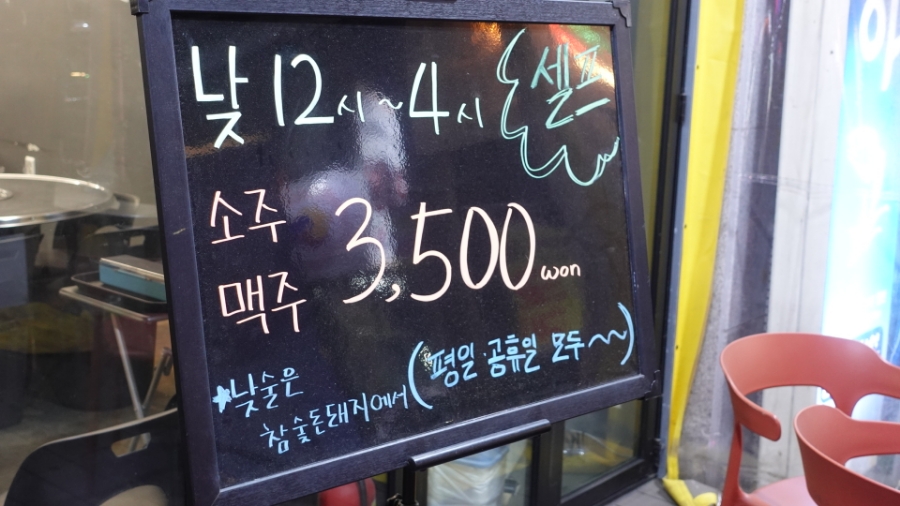 낮 12시~4시 셀프
소주
맥주 3,500 won
★낮술은
참숯돈돼지에서 (평일·공휴일 모두~~)